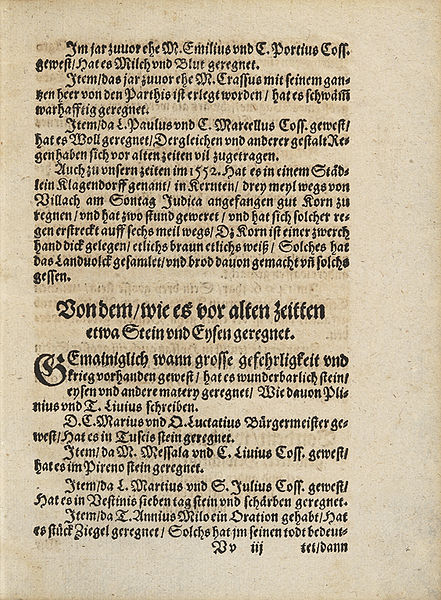 Im jar zuuor ehe M. Emilius vnd C. Portius Coss.
gewest/ Hat es Milch vnd Blut geregnet.
Item/das jar zuuor ehe M. Crassus mit seinem gan-
tzen heer von den Parthis ist erlegt worden/ hat es schwäm̃
warhafftig geregnet.
Item/da L. Paulus vnd C. Marcellus Coss. gewest/
hat es Woll geregnet/Dergleichen vnd anderer gestalt Re-
gen haben sich vor alten zeiten vil zugetragen.
Auch zu vnsern zeiten im 1552. Hat es in einem Städ-
lein Klagendorff genant/ in Kernten/ drey meyl wegs von
Villach am Sontag Judica angefangen gut Korn zu
regnen/ vnd hat zwo stund geweret / vnd hat sich solcher re-
gen erstreckt auff sechs meil wegs/ Dz Korn ist einer zwerch
hand dick gelegen/ etlichs braun etlichs weiß/ Solches hat
das Landuolck gesamlet/vnd brod dauon gemacht vñ solchs
gessen.
Von dem/wie es vor alten zeitten
etwa Stein vnd Eysen geregnet.
GEmainiglich wann grosse gefehrligkeit vnd
krieg vorhanden gewest/ hat es wunderbarlich stein/
eysen vnd andere matery geregnet/ Wie dauon Pli-
nius vnd T. Liuius schreiben.
D.C. Marius vnd Q. Luctatius Bürgermeister ge-
west/Hat es in Tuscis stein geregnet.
Item/da M. Messala vnd C. Liuius Coss. gewest/
hat es im Pireno stein geregnet.
Item/da L. Martius vnd S. Julius Coss. gewest/
Hat es in Vestinis sieben tag stein vnd schärben geregnet.
Item/da T. Annius Milo ein Oration gehabt/ Hat
es stück Ziegel geregnet/ Solchs hat jm seinen todt bedeut-
Vv iij tet/dann